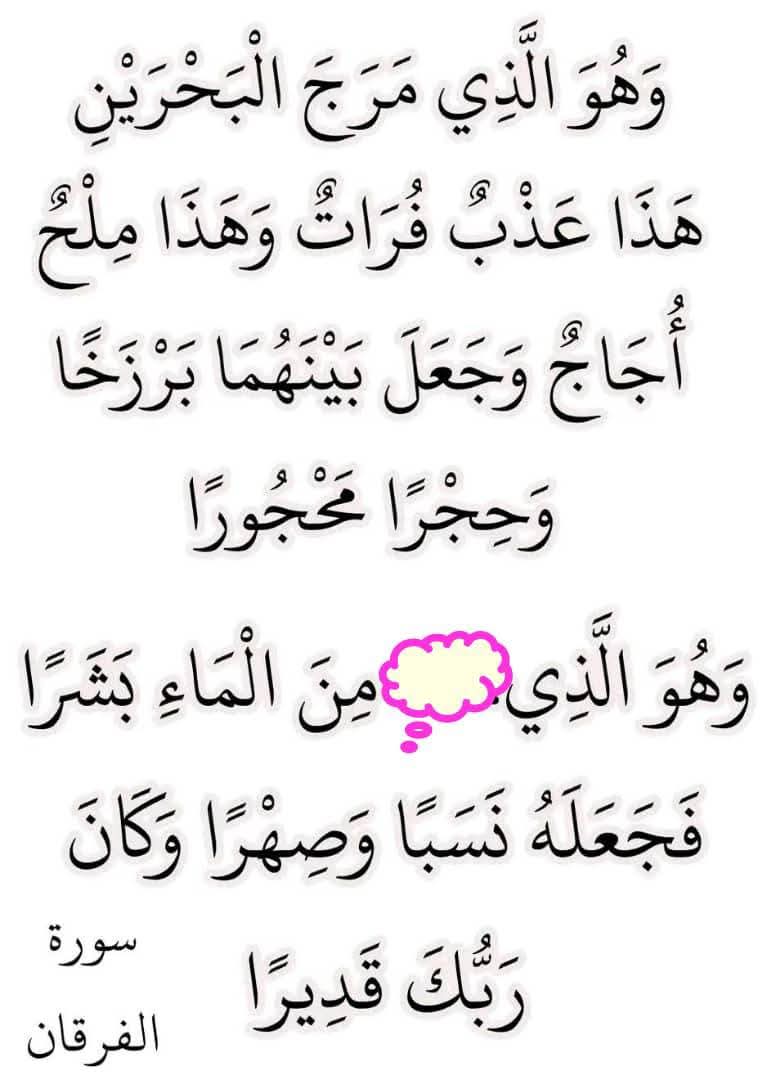 وَهُوَ الَّذِي مَرَجَ الْبَحْرَيْنِ
هَذَا عَذْبٌ فُرَاتٌ وَهَذَا مِلْحٌ
أُجَاجٌ وَجَعَلَ بَيْنَهُمَا بَرْزَخًا
وَحِجْرًا مَحْجُورًا
وَهُوَ الَّذِي مِنَ الْمَاءِ بَشَرًا
فَجَعَلَهُ نَسَبًا وَصِهْرًا وَكَانَ
رَبُّكَ قَدِيرًا
سورة
الفرقان